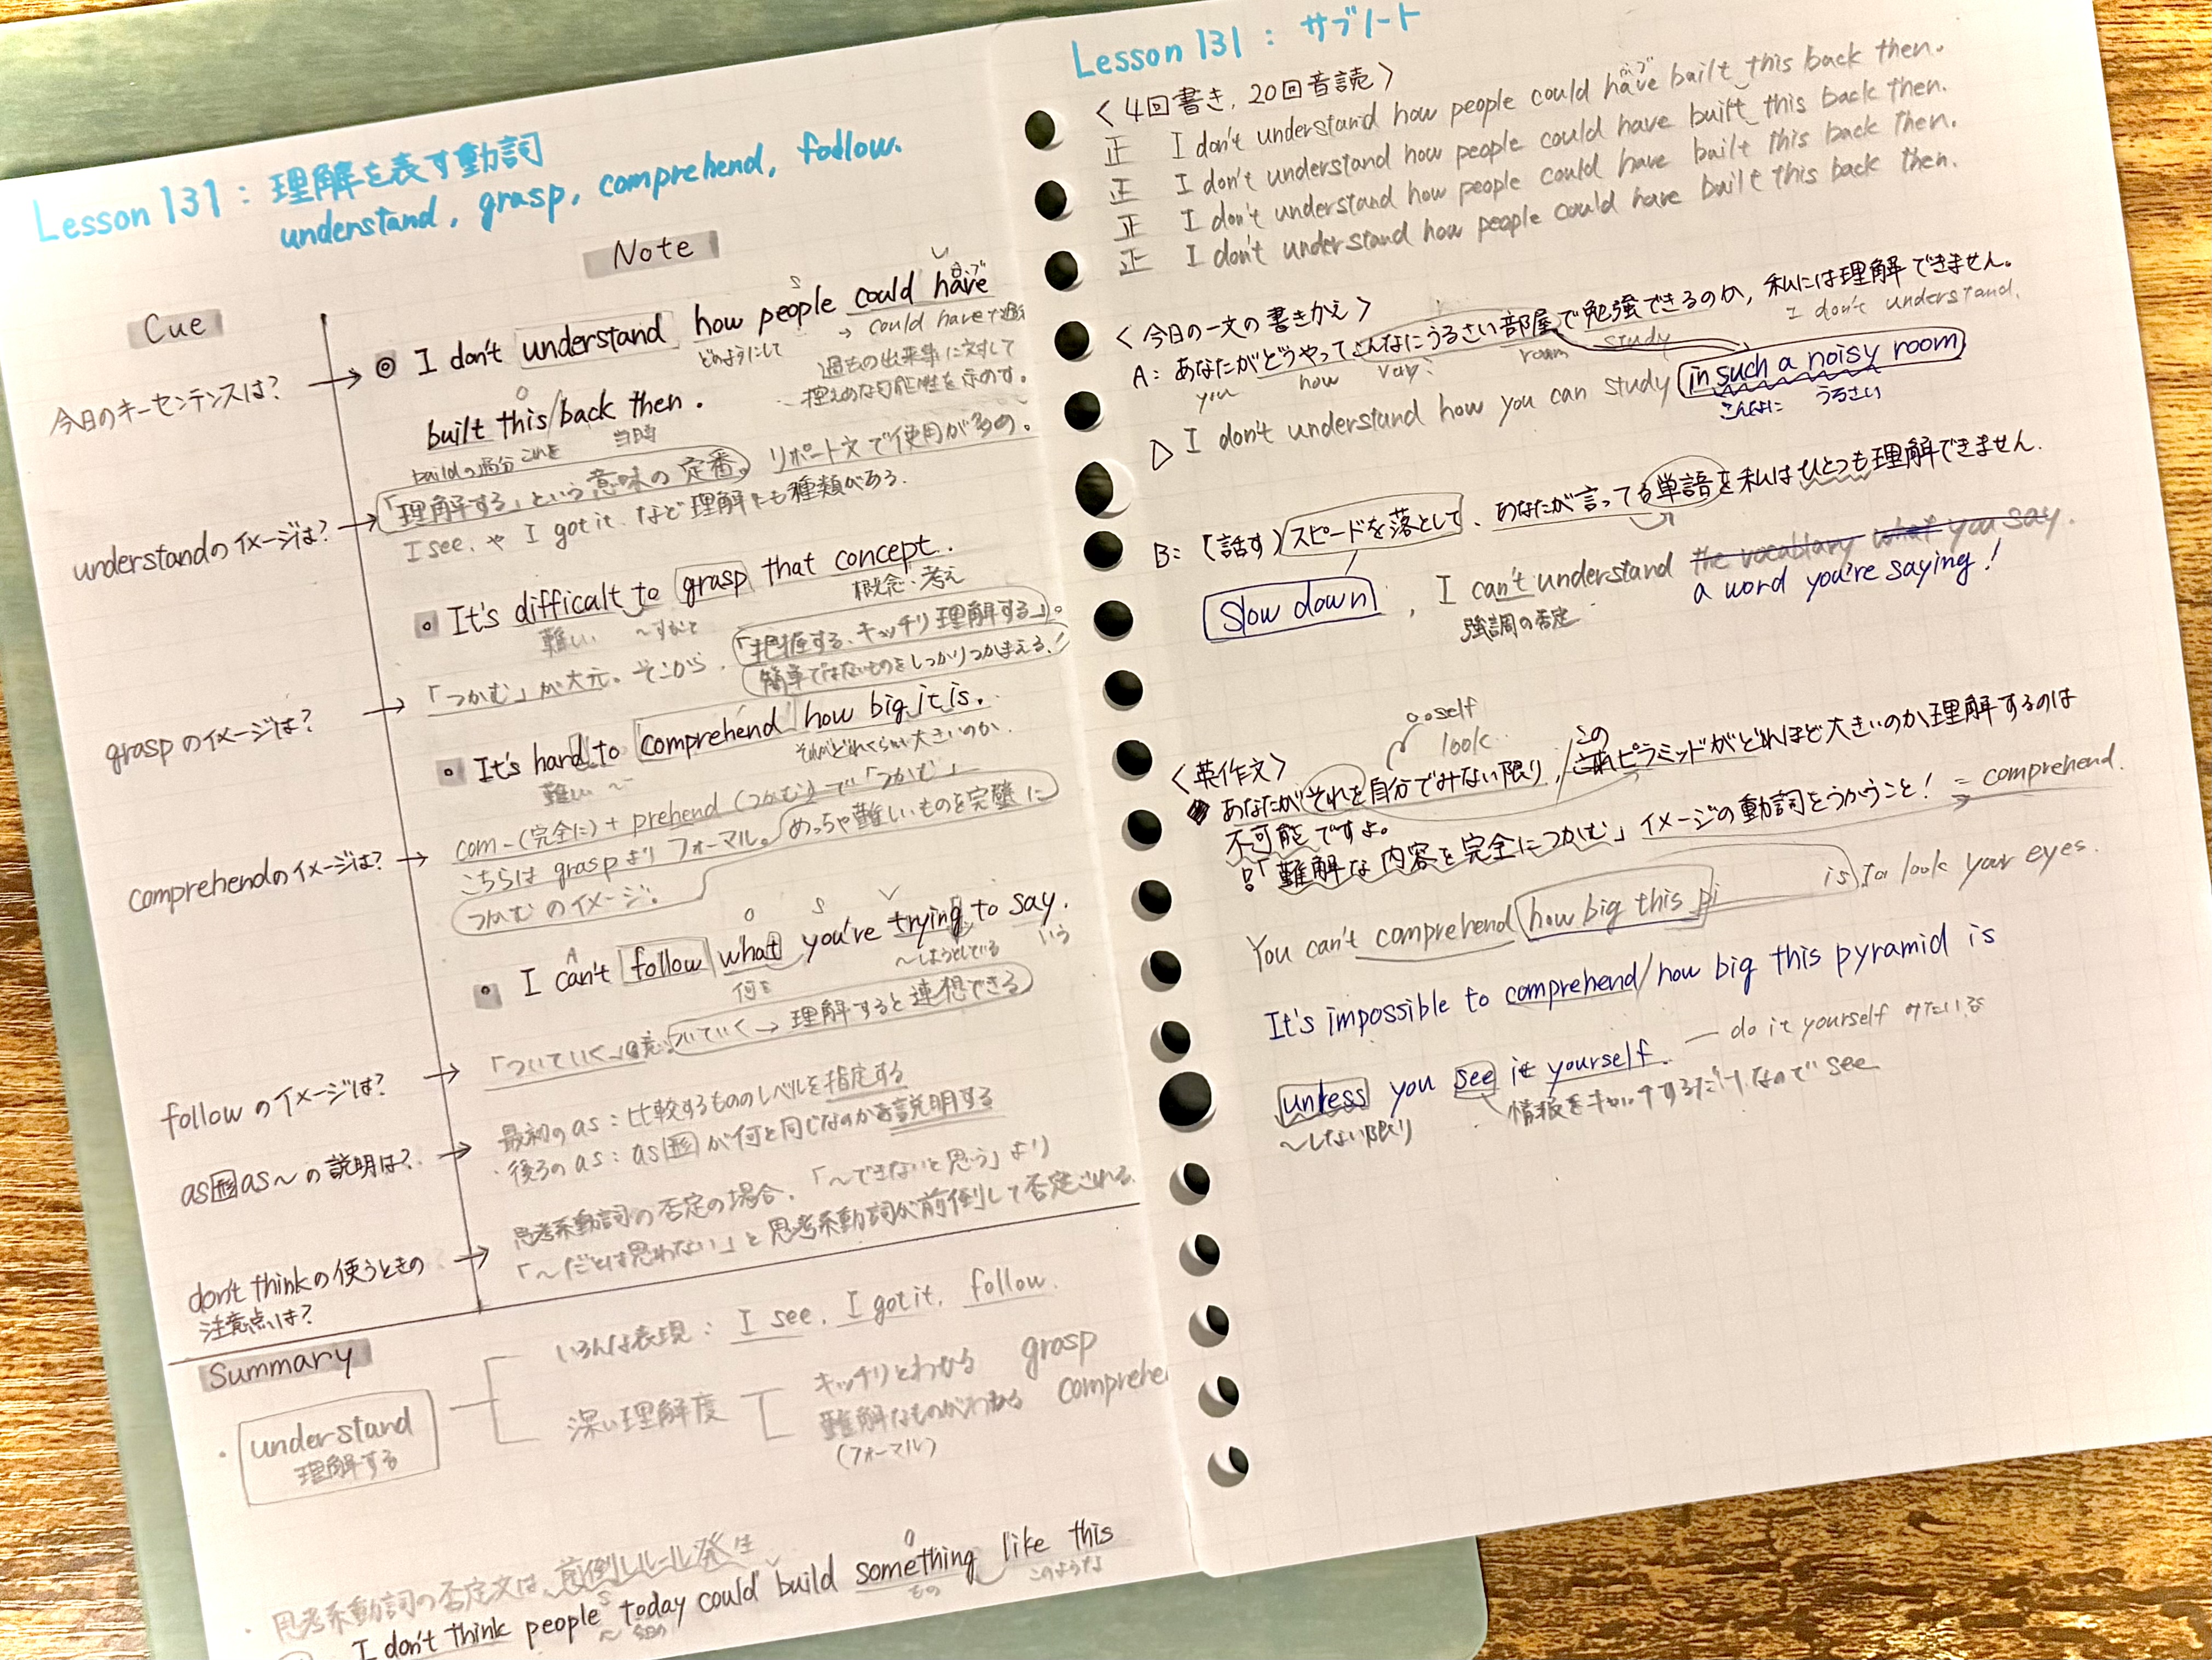 Lesson 131 : 理解を表す動詞
understand, grasp, comprehend, follow.
Cue
Note
今日のキーセンテンスは?
◎ I don't understand how people could have
ハブ
S
V
どのようにして
→ could haveで過去
過去の出来事に対して
控えめな可能性を示めす。
built this/back then.
O
buildの過分 これを 当時
understandのイメージは?
「理解する」という意味の定番。リポート文で使用が多め。
I see. や I got it. など理解にも種類がある.
It's difficalt to grasp that concept.
難しい ~すること 概念・考え
graspのイメージは?
「つかむ」が大元。そこから、「把握する、キッチリ理解する」。
簡単ではないものをしっかりつかまえる!
It's hard to comprehend how big it is.
難しい ~ それがどれくらい大きいのか.
comprehendのイメージは?
com-(完全に)+prehend(つかむ)で「つかむ」
こちらはgraspよりフォーマル。めっちゃ難しいものを完璧に
つかむのイメージ。
I can't follow what you're trying to say.
A O S V
何を ~しようとしている いう
followのイメージは?
「ついていく」ついていく→理解すると連想できる
as形as~の説明は?
最初のas:比較するもののレベルを指定する
・後ろのas:as形が何と同じなのかを説明する
don't thinkの使うときの
注意点は?
思考系動詞の否定の場合、「~できないと思う」より
「~だとは思わない」と思考系動詞が前倒しして否定される.
Summary
understand
理解する
いろんな表現: I see. I got it. follow.
深い理解度
キッチリとわかる grasp
難解なものがわかる comprehe
(フォーマル)
・思考系動詞の否定文は、前倒しルール発生
I don't think people today could build something like this
S V O
もの このような
Lesson 131 : サブノート
<4回書き, 20回音読>
正 I don't understand how people could have bailt this back then.
ハブ
正 I don't understand how people could have built this back then.
正 I don't understand how people could have bailt this back then.
正 I don't understand how people could have bailt this back then.
<今日の一文の書きかえ>
A: あなたがどうやってこんなにうるさい部屋で勉強できるのか, 私には理解できません。
you how room study I don't understand.
▷ I don't understand how you can study in such a noisy room
こんなに うるさい
B: (話す)スピードを落として、あなたが言ってる単語を私はひとつも理解できません.
Slow down, I can't understand the vocablary what you say.
a word you're saying!
強調の否定
<英作文>
○○self
look
あなたがそれを自分でみない限り, このピラミッドがどれほど大きいのか理解するのは
不可能ですよ。
「難解な内容を完全につかむ」イメージの動詞をつかうこと! = comprehend.
You can't comprehend how big this pi is to look your eyes.
It's impossible to comprehend/how big this pyramid is
unless you see it yourself. — do it yourself みたいな
~しない限り
情報をキャッチするだけなのでsee